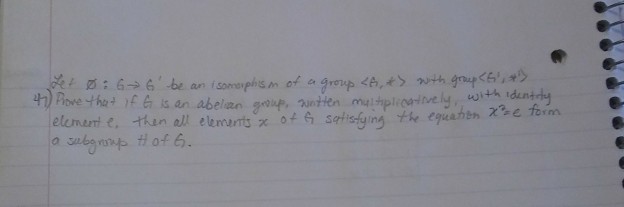 Let ø: G → G' be an isomorphism of a group <G, *> with group <G', *'>
47) Prove that if G is an abelian group, written multiplicatively, with identity
element e, then all elements x of G satisfying the equation x²=e form
a subgroup H of G.